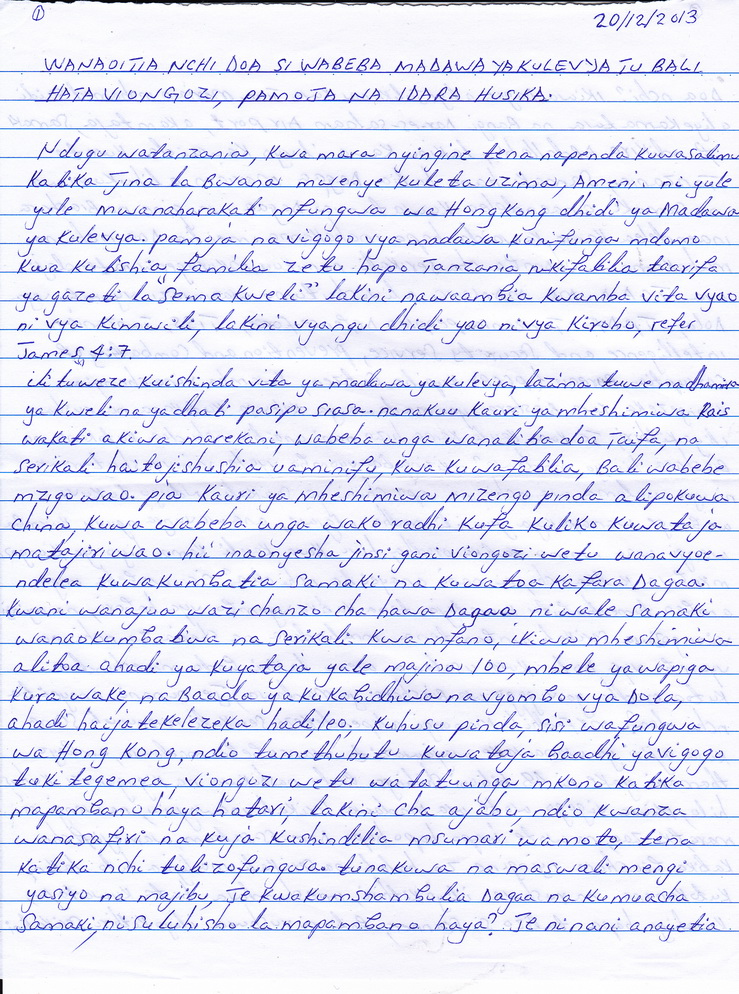 ①
20/12/2013
WANAOITIA NCHI DOA SI WABEBA MADAWA YAKULEVYA TU BALI
HATA VIONGOZI, PAMOJA NA IDARA HUSIKA.
Ndugu watanzania, Kwa mara nyingine tena napenda Kuwasalimu
Katika Jina la Bwana mwenye Kuleta uzima, Ameni. ni yule
yule mwanaharakati mfungwa wa HongKong dhidi ya Madawa
ya Kulevya. pamoja na vigogo vya madawa Kunifunga mdomo
Kwa Kutishia familia zetu hapo Tanzania, nikifatilia taarifa
ya gazeti la "Sema Kweli" lakini nawaambia Kwamba vita vyao
ni vya Kimwili, lakini vyangu dhidi yao ni vya Kiroho, refer
James, 4:7.
ili tuweze Kuishinda vita ya madawa yakulevya, lazima tuwe na dhamira
ya Kweli na ya dhati pasipo siasa. nanakuu Kauri ya mheshimiwa Rais
wakati akiwa marekani, wabeba unga wanalitia doa Taifa, na
serikali haitojishushia uaminifu, Kwa Kuwafatilia, Bali wabebe
mzigo wao. pia Kauri ya mheshimiwa mizengo pinda alipokuwa
China, Kuwa wabeba unga wako radhi Kufa Kuliko Kuwataja
matajiri wao. hii inaonyesha jinsi gani viongozi wetu wanavyoe-
ndelea Kuwakumbatia samaki na Kuwatoa Kafara Dagaa.
Kwani wanajua wazi chanzo cha hawa Dagaa ni wale samaki
wanaokumbatiwa na serikali. Kwa mfano, ikiwa mheshimiwa
alitoa ahadi ya Kuyataja yale majina 100, mbele ya wapiga
Kura wake, na Baada ya Kukabidhiwa na vyombo vya Dola,
ahadi haijatekelezeka hadi leo. Kuhusu pinda, sisi wafungwa
wa Hong Kong, ndio tumethubutu Kuwataja baadhi ya vigogo
tukitegemea, viongozi wetu watatuunga mkono Katika
mapambano haya hatari, lakini Cha ajabu, ndio Kwanza
wanasafiri na Kuja Kushindilia msumari wamoto, tena
Katika nchi tulizofungwa. tunakuwa na maswali mengi
yasiyo na majibu, Je Kwakumshambulia Dagaa na Kumuacha
Samaki, ni suluhisho la mapambano haya? Je ni nani anayetia